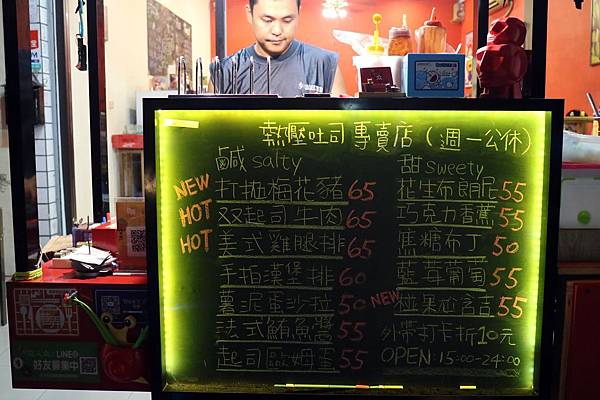 熱壓吐司專賣店(週一公休)
鹹salty
NEW 打拋梅花豬65
HOT 双起司牛肉65
HOT 美式雞腿排65
手拍漢堡排60
薯泥蛋沙拉50
法式鮪魚醬55
起司歐姆蛋55
甜sweety
花生布朗尼55
巧克力香蕉55
焦糖布丁50
藍莓葡萄55
NEW 堅果尬吉吉55
外帶打卡折10元
OPEN:15:00-24:00
LINE@
好友募集中